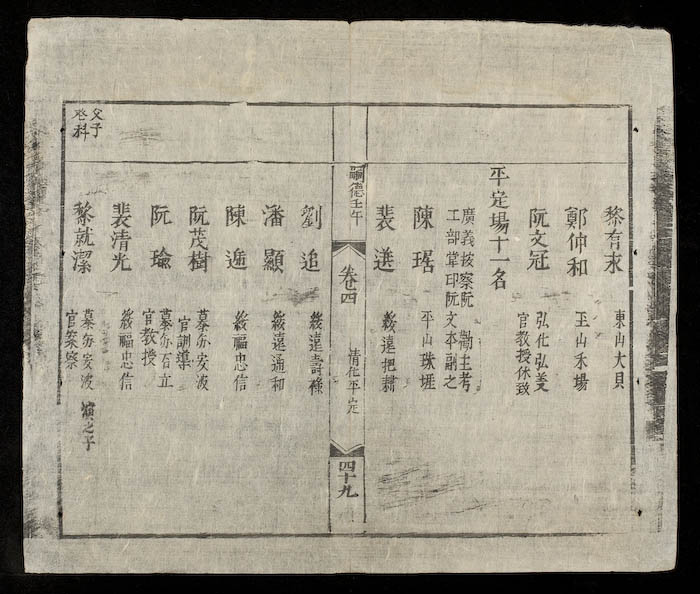 黎有求
東山大貝
鄭仲和
玉山禾場
阮文冠
弘化弘
官教授休致
平定場十一名
廣義按察阮 主考
工部掌印阮文本副之
陳琚
平山珠
裴
綏遠把
嗣德壬午
卷四
清化平定
四十九
劉追
綏遠壽祿
潘顯
綏遠通和
陳遁
綏福忠信
阮茂樹
慕安波
官訓導
阮瑜
慕百立
官教授
裴清光
綏福忠信
父子
登科
黎就潔
慕安波
之子
官案察